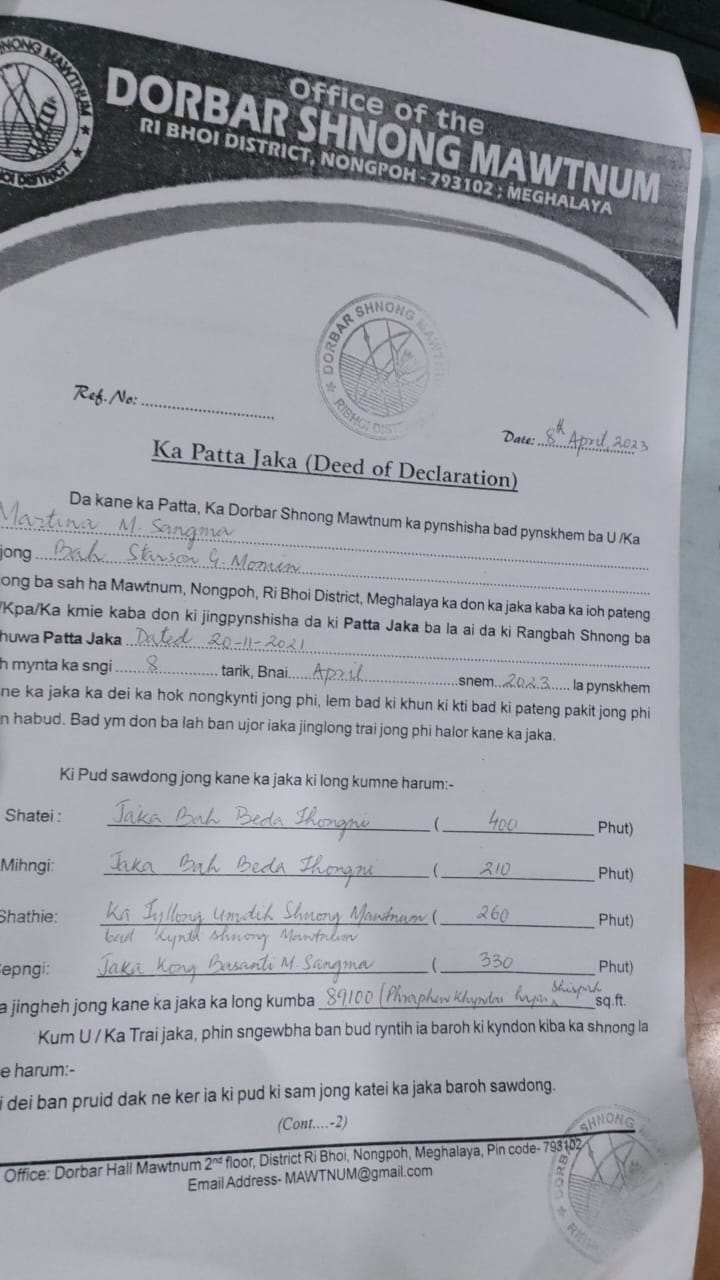 NONG MAWTNUM
OI DISTRICT
Office of the
DORBAR SHNONG MAWTNUM
RI BHOI DISTRICT, NONGPOH - 793102 ; MEGHALAYA
DORBAR SHNONG MAWTN
RIBHOI DIST
Ref. No: ..............................
Date: 8th April, 2023
Ka Patta Jaka (Deed of Declaration)
Da kane ka Patta, Ka Dorbar Shnong Mawtnum ka pynshisha bad pynskhem ba U /Ka
Martina M. Sangma
jong Bah Starson G. Momin
ong ba sah ha Mawtnum, Nongpoh, Ri Bhoi District, Meghalaya ka don ka jaka kaba ka ioh pateng
/Kpa/Ka kmie kaba don ki jingpynshisha da ki Patta Jaka ba la ai da ki Rangbah Shnong ba
huwa Patta Jaka Dated 20-11-2021
h mynta ka sngi ......8............ tarik, Bnai.....April..................snem..2023..... la pynskhem
ne ka jaka ka dei ka hok nongkynti jong phi, lem bad ki khun ki kti bad ki pateng pakit jong phi
n habud. Bad ym don ba lah ban ujor iaka jinglong trai jong phi halor kane ka jaka.
Ki Pud sawdong jong kane ka jaka ki long kumne harum:-
Shatei : Jaka Bah Beda Thongni ( 400 Phut)
Mihngi: Jaka Bah Beda Thongni ( 210 Phut)
Shathie: Ka Iyllong Umdih Shnong Mawtnum ( 260 Phut)
bad Kynta Shnong Mawtnum
epngi: Jaka Kong Basanti M. Sangma ( 330 Phut)
a jingheh jong kane ka jaka ka long kumba 89100 (Phraphew Khyndai hajar Shispah sq.ft.
Kum U / Ka Trai jaka, phin sngewbha ban bud ryntih ia baroh ki kyndon kiba ka shnong la
e harum:-
i dei ban pruid dak ne ker ia ki pud ki sam jong katei ka jaka baroh sawdong.
(Cont....-2)
Office: Dorbar Hall Mawtnum 2nd floor, District Ri Bhoi, Nongpoh, Meghalaya, Pin code- 793102
Email Address- MAWTNUM@gmail.com
DORB SHNONG
RI